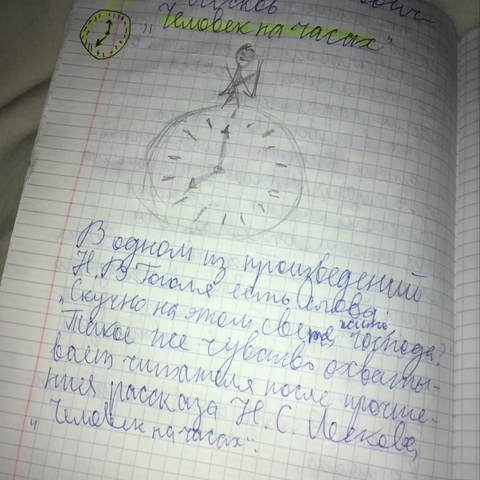 Лесков
„Человек на часах“
В одном из произведений
Н. В. Гоголя есть слова:
„Скучно на этом свете жить господа?
Такое же чувство охваты-
вает читателя после прочте-
ния рассказа Н. С. Лескова
„Человек на часах“.